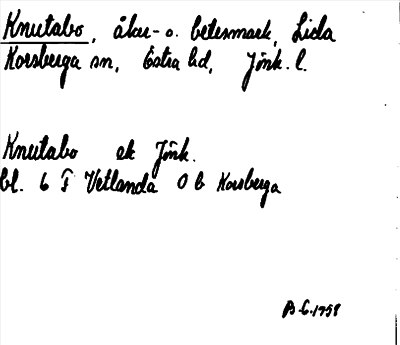 Knutabo, åker- o. betesmark, Lida
Korsberga sn, Östra hd, Jönk. l.
Knutabo ek Jönk.
bl. 6 F Vetlanda 0 b Korsberga
B-G. 1958